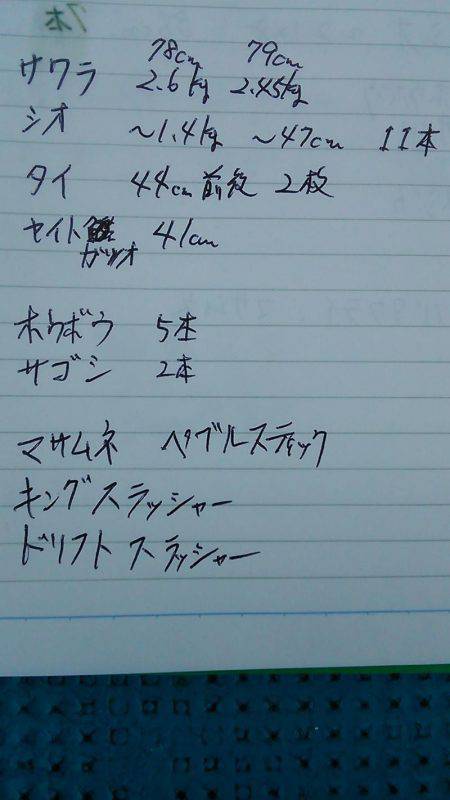 78cm 79cm
サワラ 2.6kg 2.45kg
シオ ~1.4kg ~47cm 11本
タイ 44cm前後 2枚
セイト 41cm
ガツオ
ホウボウ 5本
サゴシ 2本
マサムネ ペブルスティック
キングスラッシャー
ドリフトスラッシャー